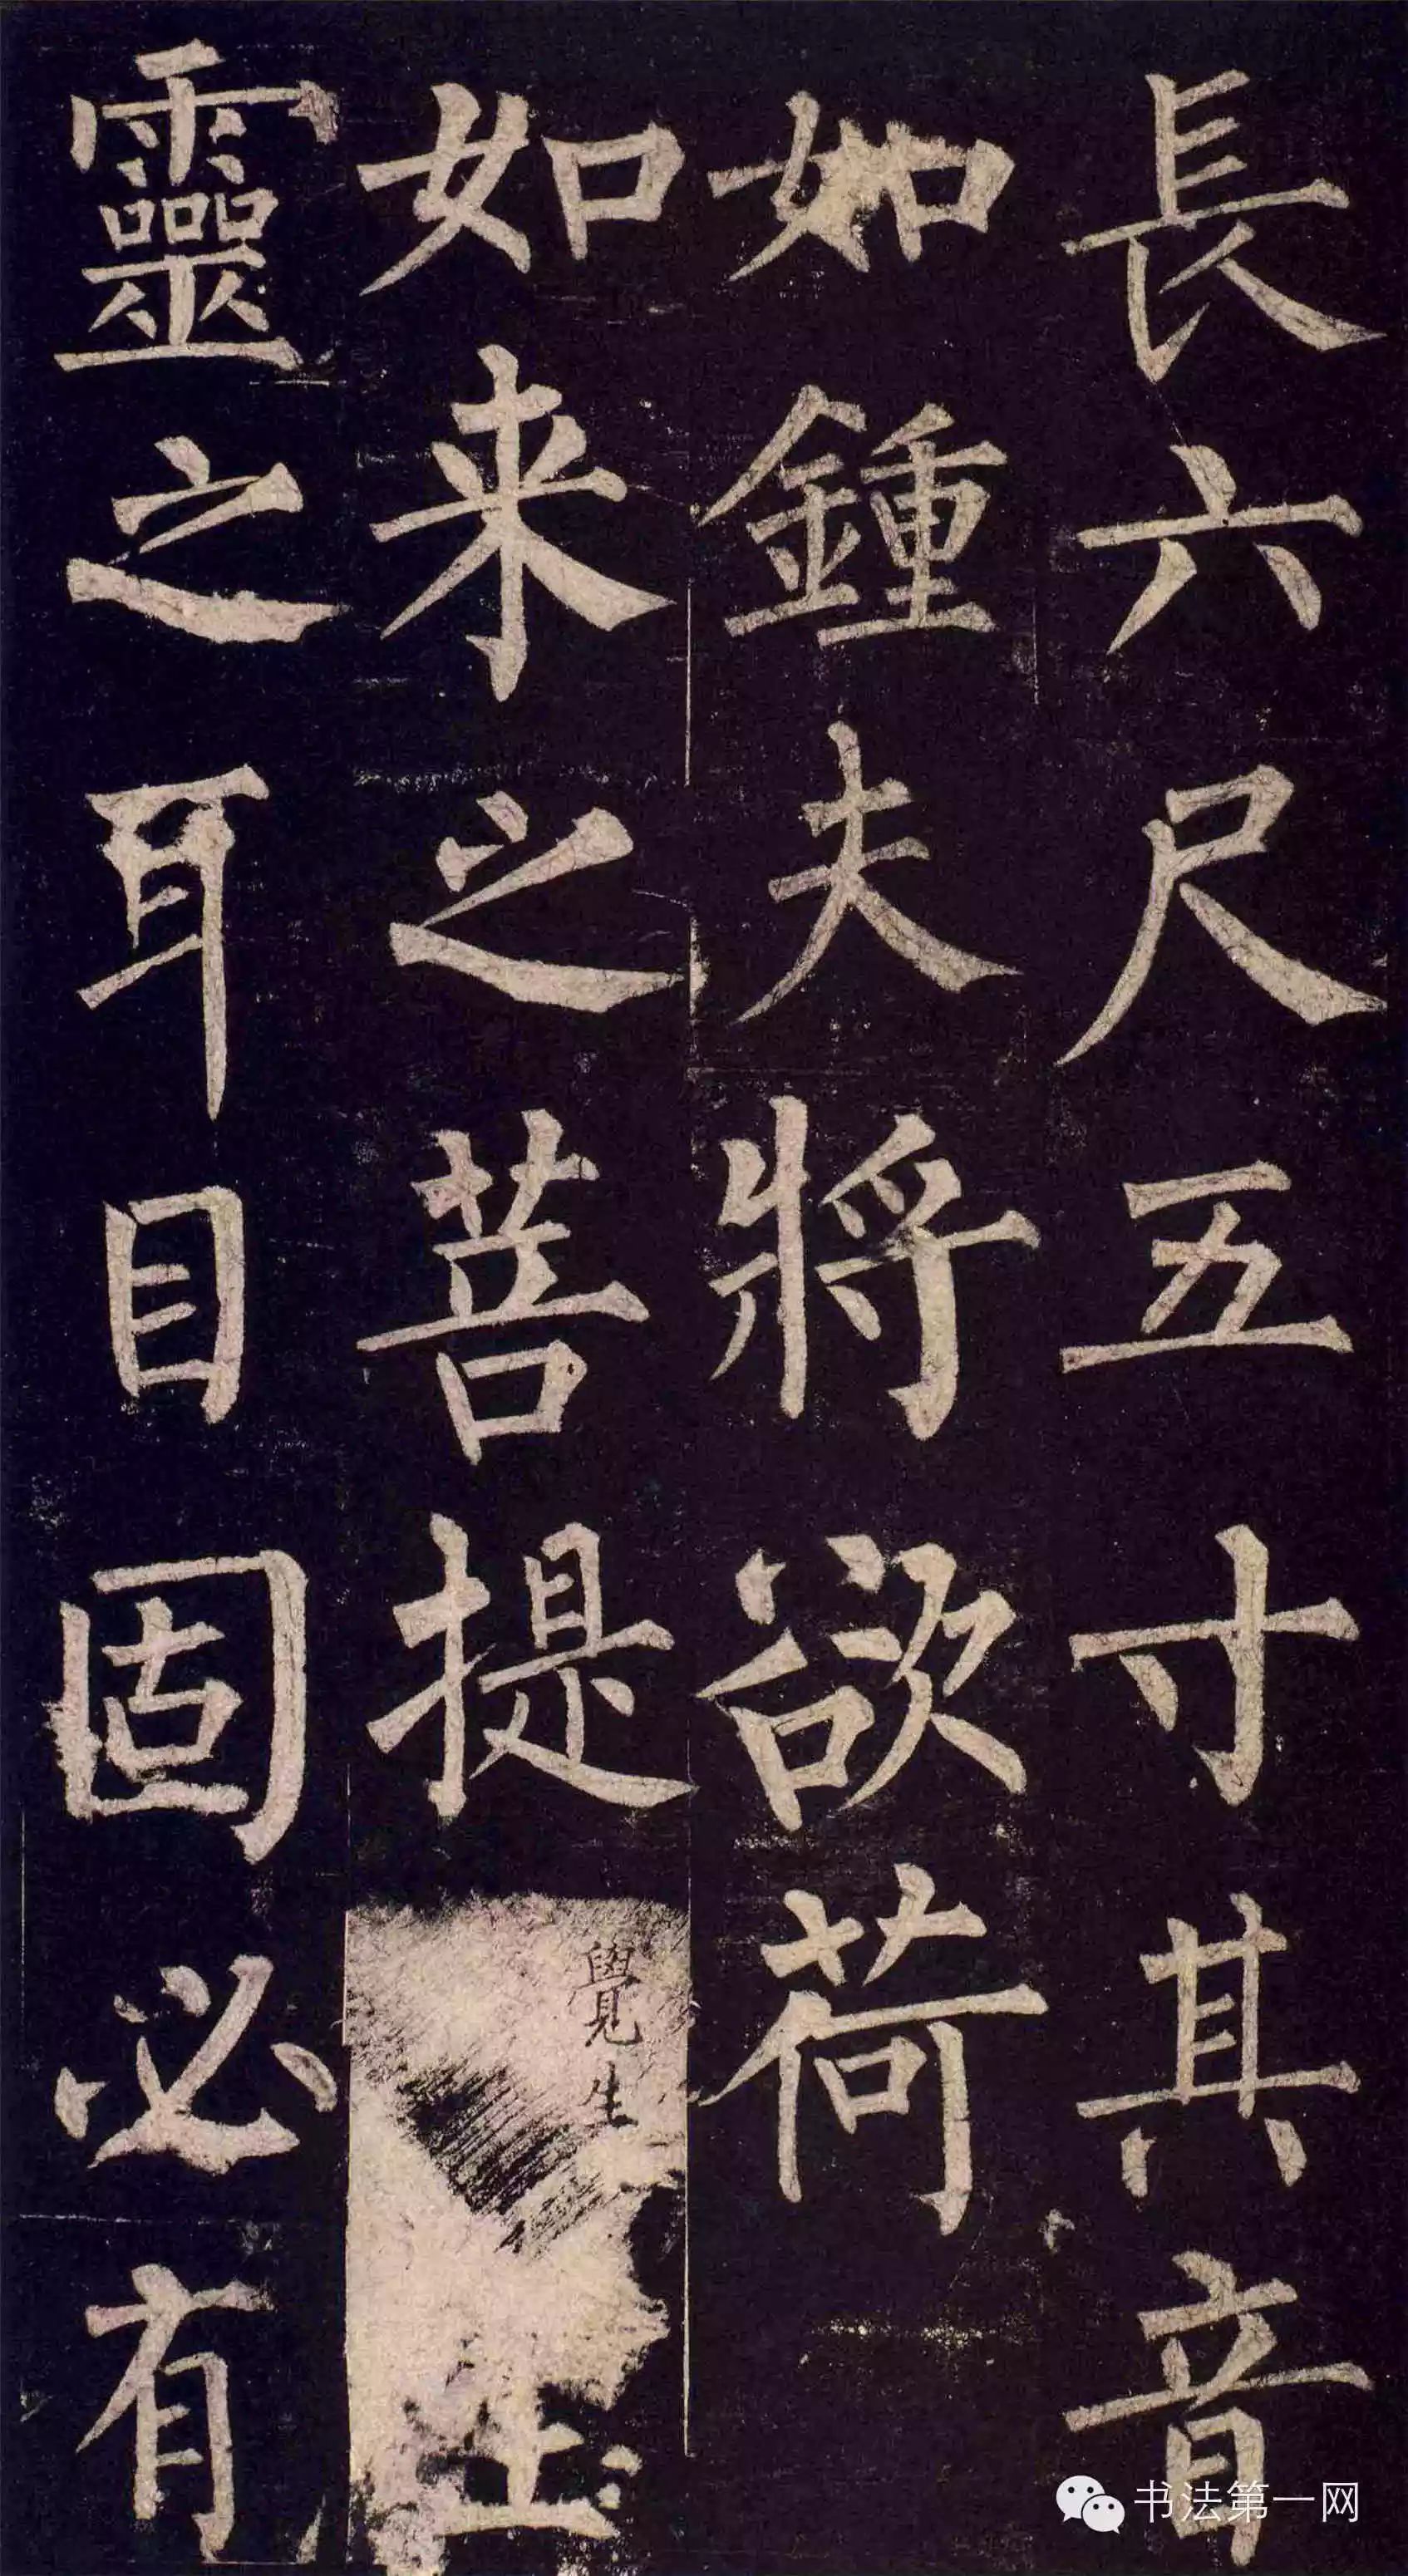 長六尺五寸其音
如鍾夫將欲荷
如来之菩提
覺生
生
靈之耳目固必有
书法第一网